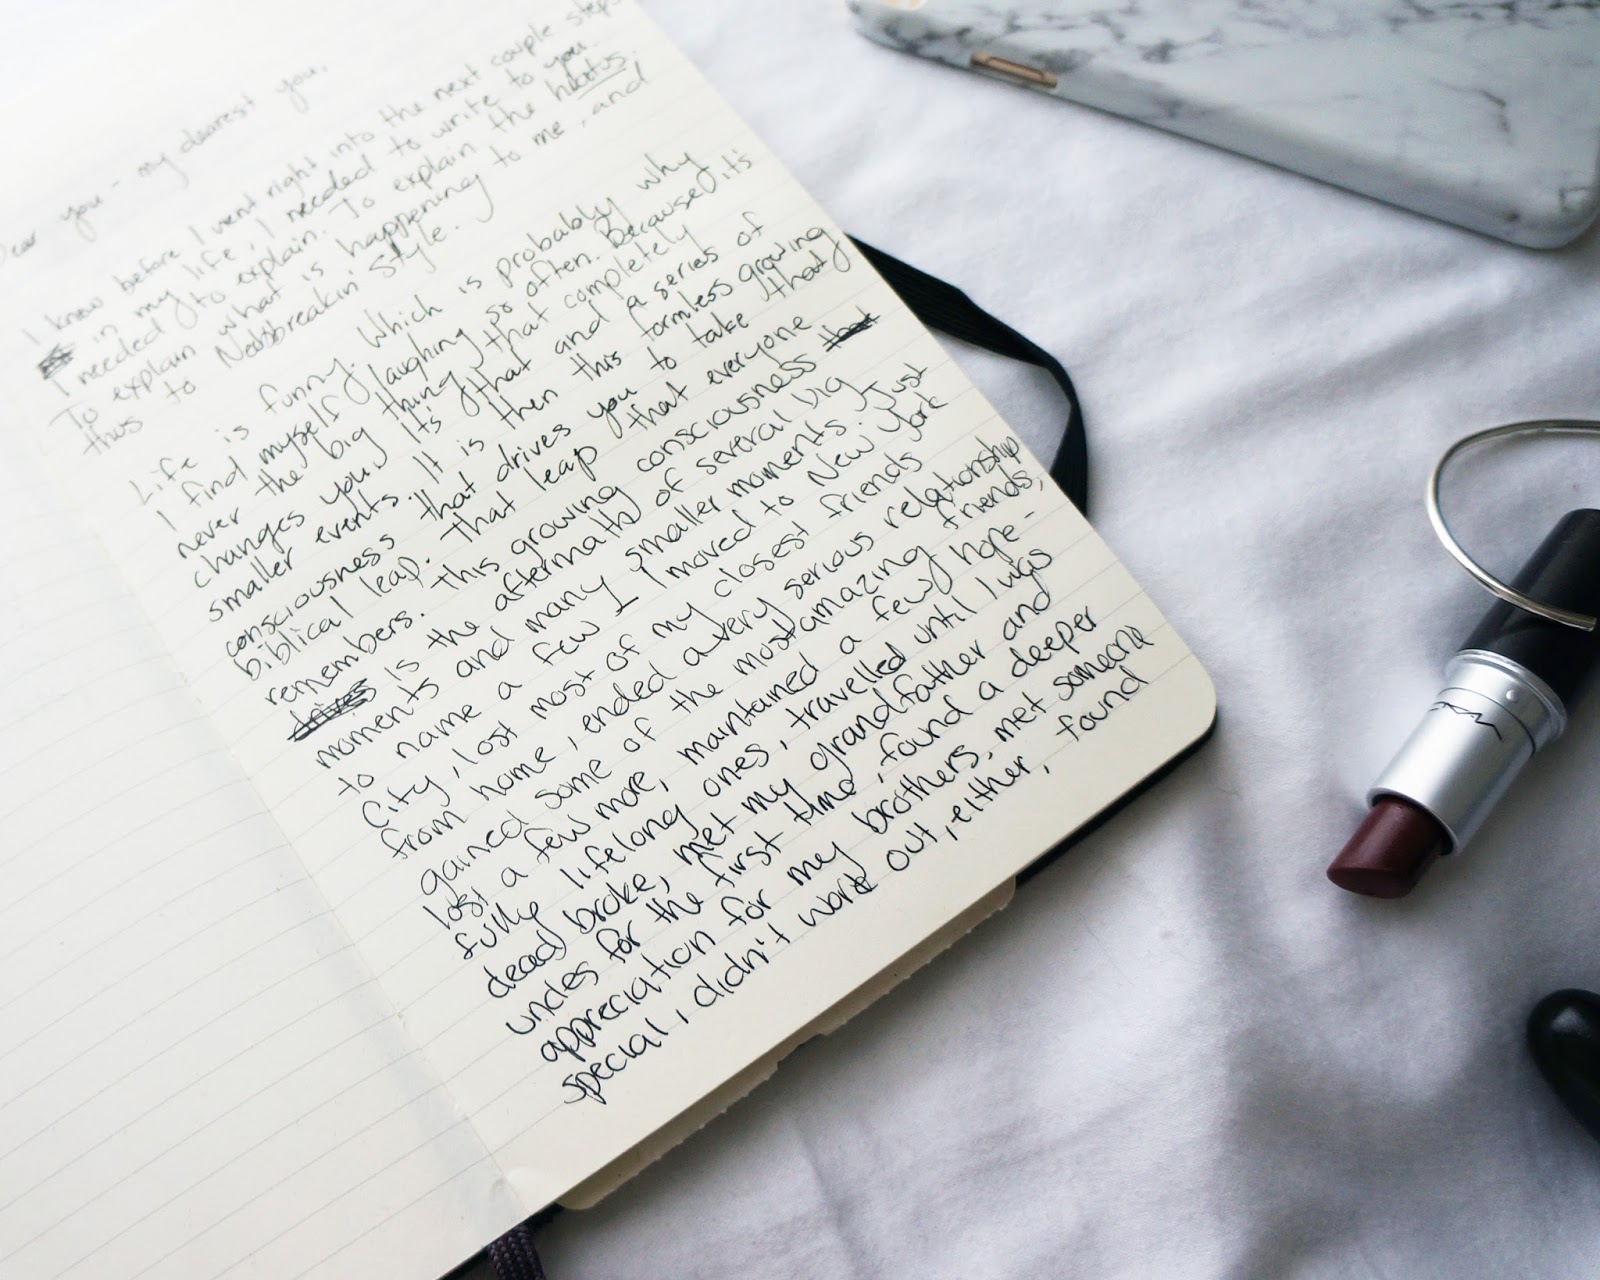 Dear you - my dearest you,
I know before I went right into the next couple steps
in my life, I needed to write to you.
I needed to explain. To explain the hiatus.
To explain what is happening to me, and
thus to Nedsbreakin' Style.
Life is funny. Which is probably why
I find myself laughing so often. Because it's
never the big thing that completely
changes you. It's that and a series of
smaller events. It is then this formless growing
consciousness that drives you to take that
biblical leap. That leap that everyone
remembers. This growing consciousness
is the aftermath of several big
moments and many smaller moments. Just
to name a few I moved to New York
City, lost most of my closest friends
from home, ended a very serious relationship
gained some of the most amazing friends,
lost a few more, maintained a few hope-
fully lifelong ones, travelled until I was
dead broke, met my grandfather and
uncles for the first time, found a deeper
appreciation for my brothers, met someone
special, didn't work out, either, found
MAC